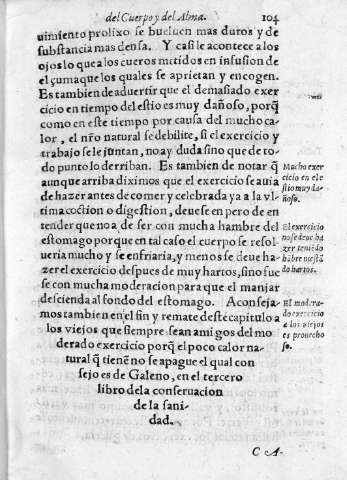 del Cuerpo y del Alma. 104
uimiento prolixo se bueluen mas duros y de
substancia mas densa. Y casi le acontece a los
ojos lo que a los cueros metidos en infusion de
el çumaque los quales se aprietan y encogen.
Es tambien de aduertir que el demasiado exer
cicio en tiempo del estio es muy dañoso, porq̃
como en este tiempo por causa del mucho ca-
lor, el nr̃o natural se debilite, si el exercicio y
trabajo se le juntan, no ay duda sino que de to-
do punto lo derriban. Es tambien de notar q̃
aunque arriba diximos que el exercicio se auia
de hazer antes de comer y celebrada ya a la vl-
tima coction o digestion, deue se en pero de en
tender que no a de ser con mucha hambre del
estomago porque en tal caso el cuerpo se resol-
ueria mucho y se enfriaria, y menos se deue ha-
zer el exercicio despues de muy hartos, sino fue
se con mucha moderacion para que el manjar
descienda al fondo del estomago. Aconseja-
mos tambien en el fin y remate deste capitulo a
los viejos que siempre sean amigos del mo
derado exercicio porq̃ el poco calor na-
tural q̃ tienẽ no se apague el qual con
sejo es de Galeno, en el tercero
libro de la conseruacion
de la sani-
dad.
Mucho exer
cicio en el e
stio muy da-
ñoso.
El exercicio
no se deue ha
zer teniẽdo
hãbre ni estã
do hartos.
El modera-
do exercicio
a los viejos
es prouecho
so.
C A-